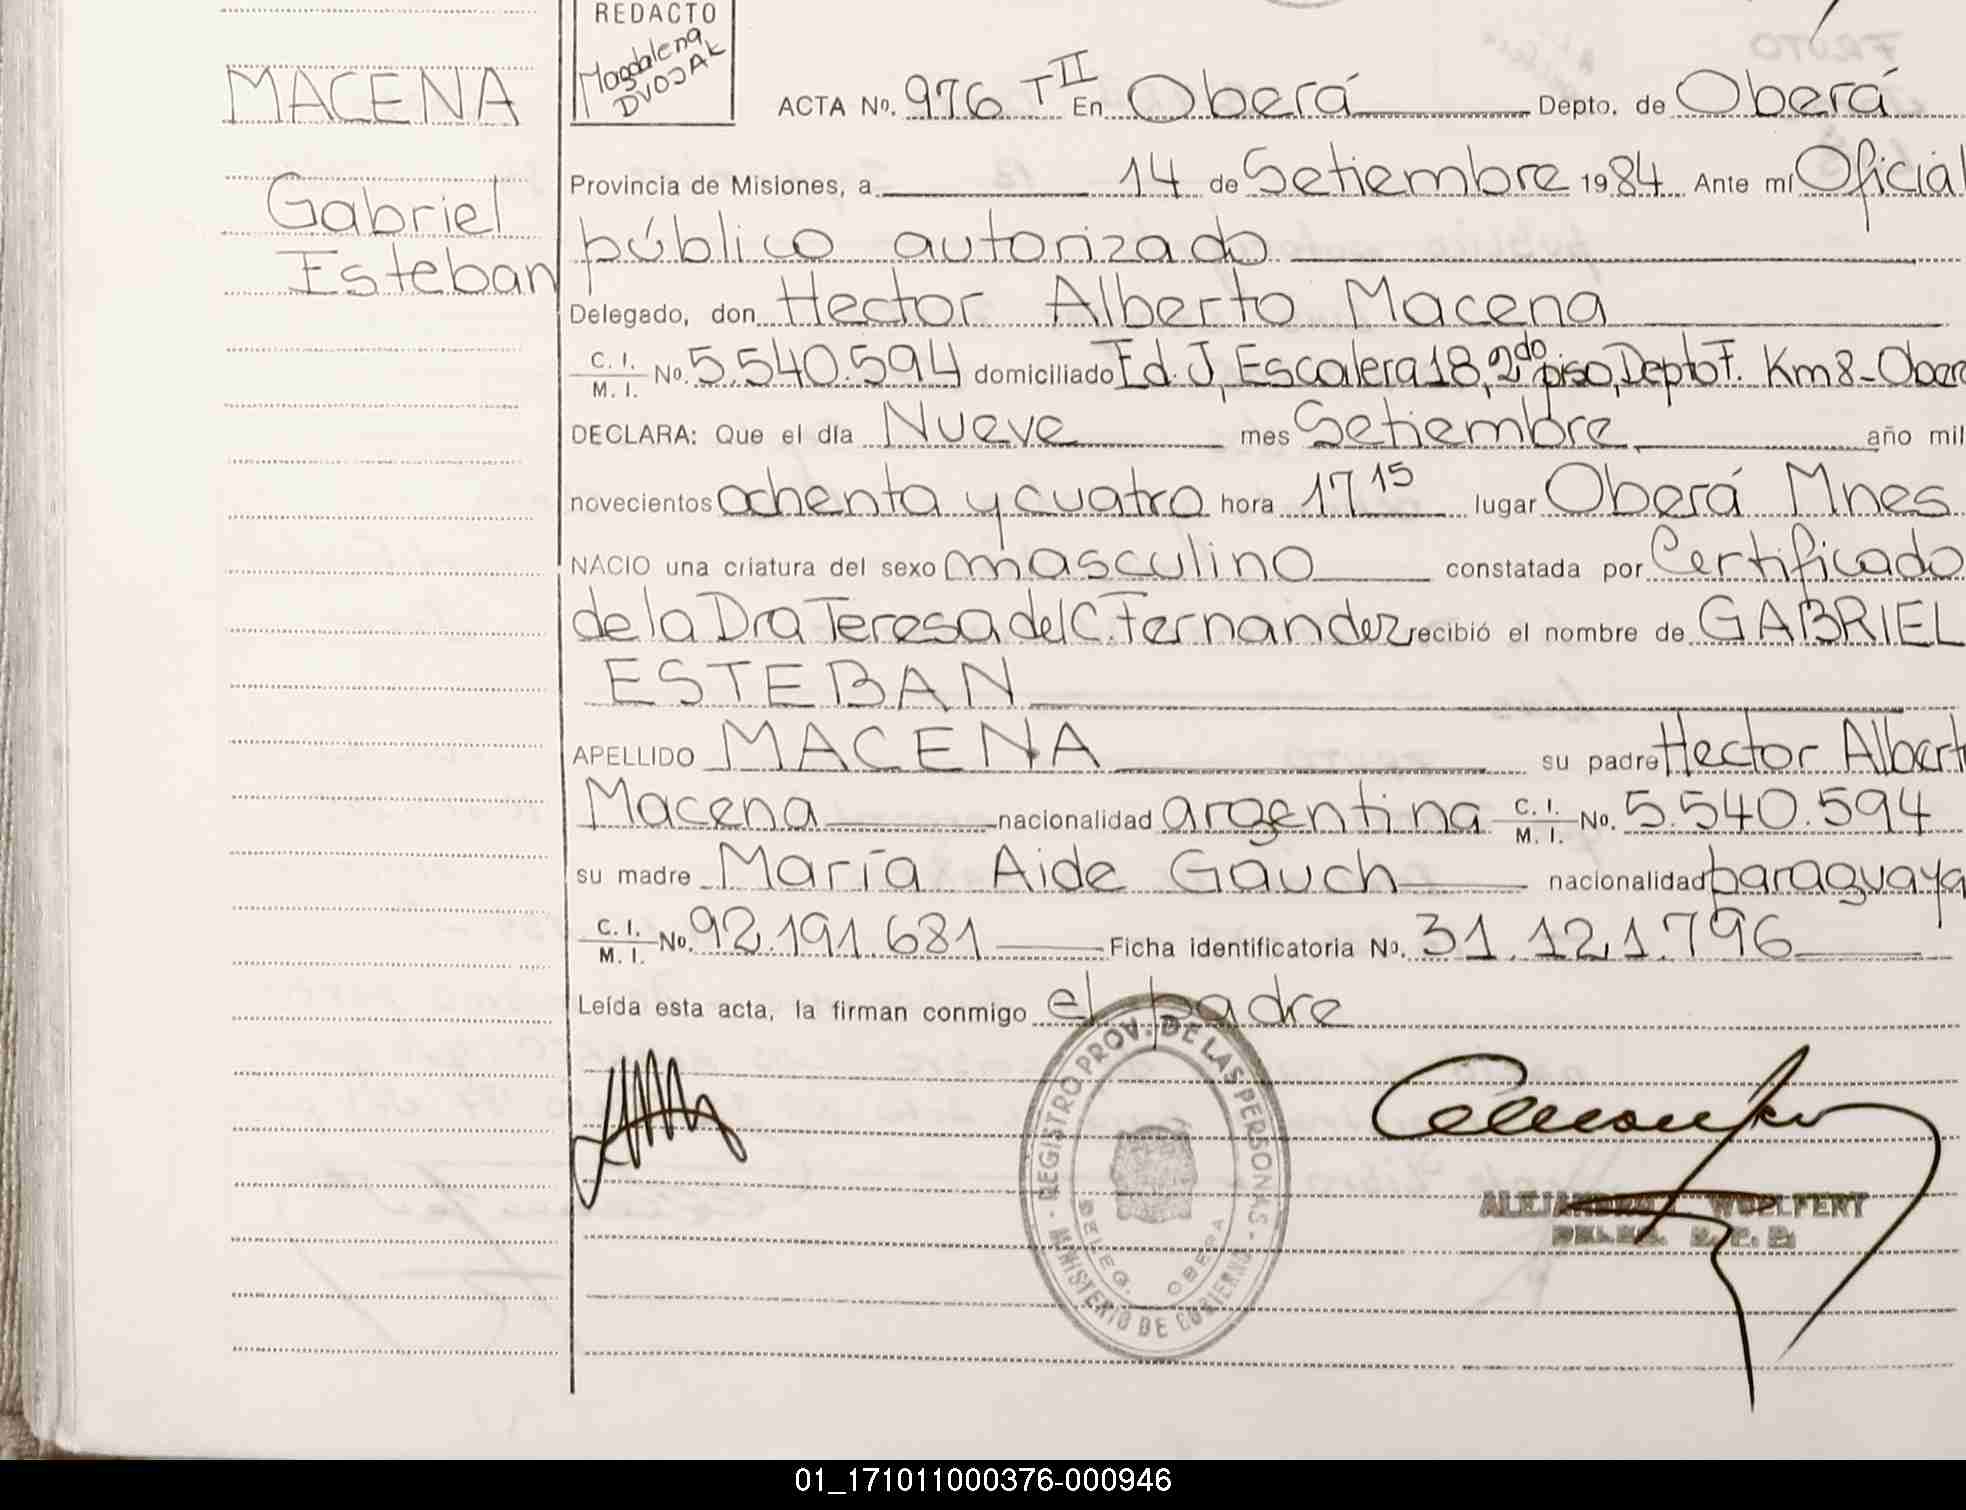 MACENA
Gabriel
Esteban
REDACTO
Magdalena
DVOJAK
ACTA No. 976 T II En Oberá Depto. de Oberá
Provincia de Misiones, a 14 de Setiembre 1984 Ante mí Oficial
público autorizado
Delegado, don Hector Alberto Macena
C. I. / M. I. No. 5.540.594 domiciliado Ed. J, Escalera 18, 2do piso, Depto F. Km 8 - Ober
DECLARA: Que el día Nueve mes Setiembre año mil
novecientos ochenta y cuatro hora 17 15 lugar Oberá Mnes
NACIO una criatura del sexo masculino constatada por Certificado
de la Dra Teresa del C. Fernandez recibió el nombre de GABRIEL
ESTEBAN
APELLIDO MACENA su padre Hector Albert
Macena nacionalidad argentina C. I. / M. I. No. 5.540.594
su madre María Aide Gauch nacionalidad paraguaya
C. I. / M. I. No. 92.191.681 Ficha identificatoria No. 31.121.796
Leída esta acta, la firman conmigo el padre
REGISTRO PROV. DE LAS PERSONAS
MINISTERIO DE GOBIERNO
DELEG. OBERA
WOELFERT
01_171011000376-000946